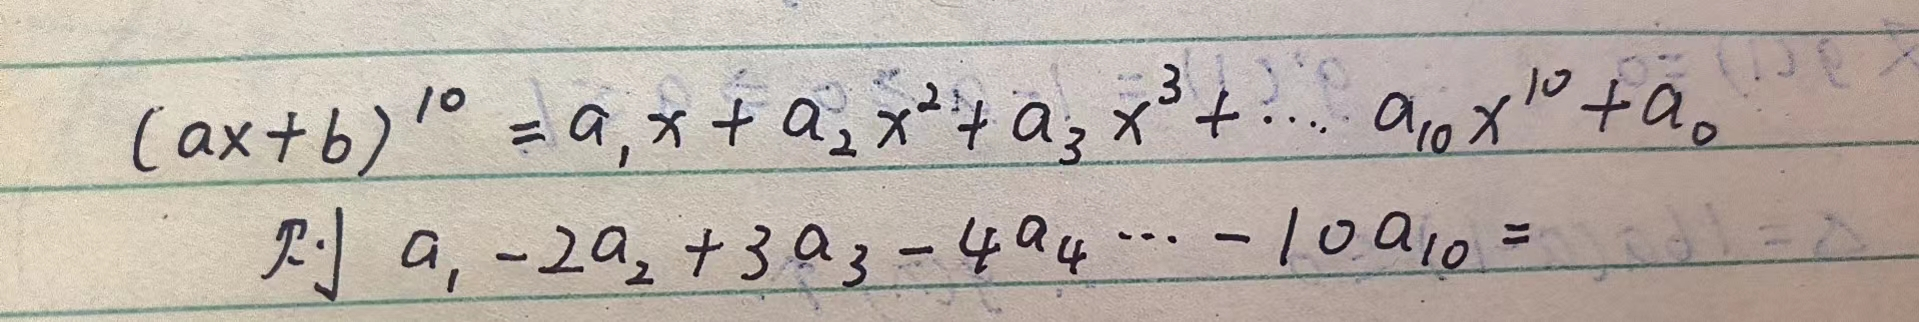 (ax+b)¹⁰ = a₁x + a₂x² + a₃x³ + .... a₁₀x¹⁰ + a₀
则 a₁ - 2a₂ + 3a₃ - 4a₄ ... - 10a₁₀ =